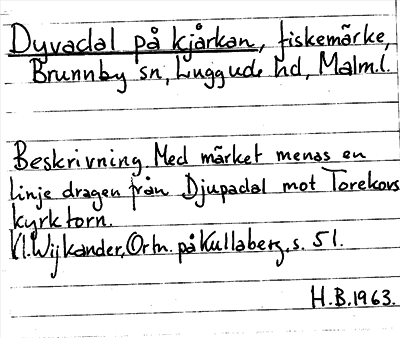 Dyvadal på kjårkan, fiskemärke,
Brunnby sn, Luggude hd, Malm.l.
Beskrivning. Med märket menas en
linje dragen från Djupadal mot Torekovs
kyrktorn.
Kl. Wijkander, Ortn. på Kullaberg, s. 51.
H.B. 1963.